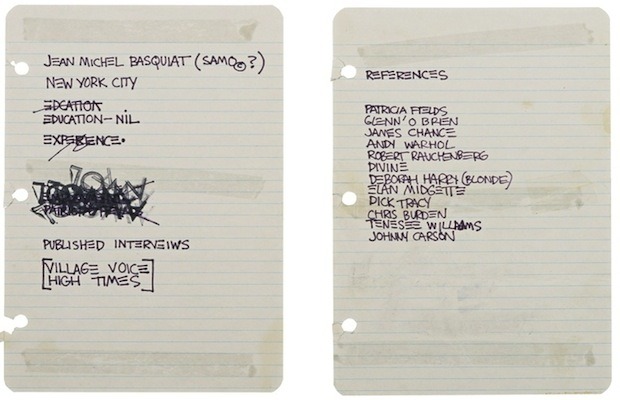 JEAN MICHEL BASQUIAT (SAMO©?)
NEW YORK CITY
EDCATION
EDUCATION—NIL
EXPERIENCE.
PUBLISHED INTERVEIWS
[VILLAGE VOICE
HIGH TIMES]
REFERENCES
PATRICIA FIELDS
GLENN' O BRIEN
JAMES CHANCE
ANDY WARHOL
ROBERT RAUCHENBERG
DIVINE
DEBORAH HARRY (BLONDE)
ELAN MIDGETTE
DICK TRACY
CHRIS BURDEN
TENESEE WILLIAMS
JOHNNY CARSON